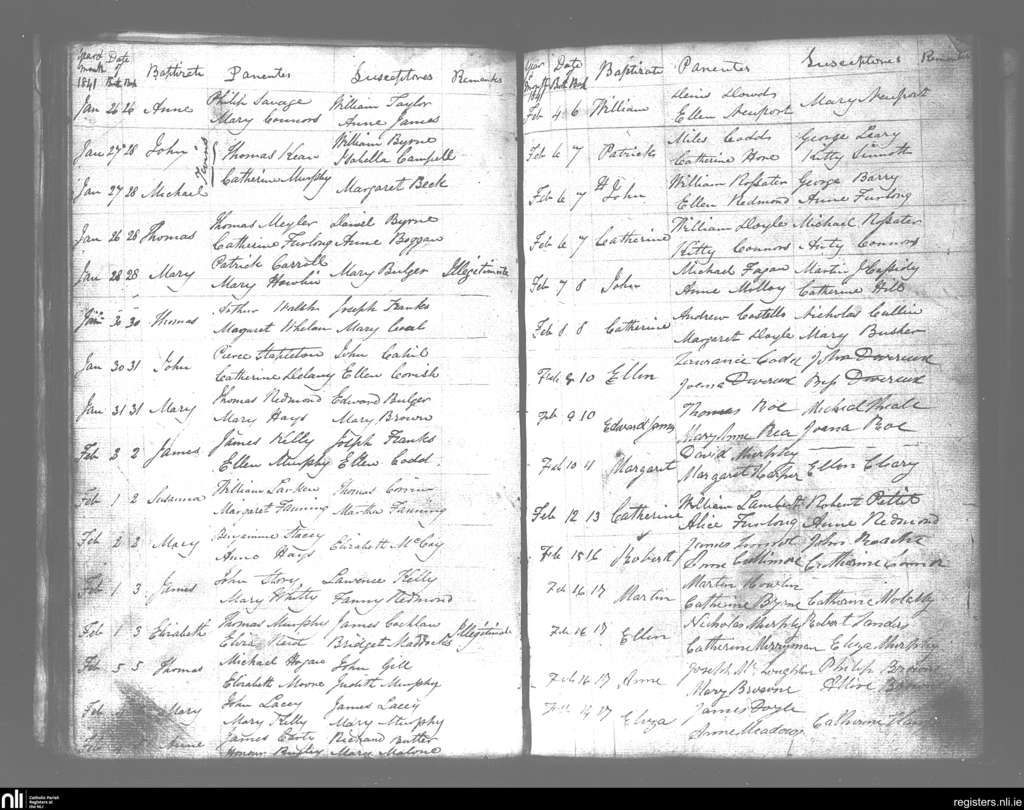 Year & month 1841 Date of Birth Bap Baptizati Parentes Susceptores Remarks
Jan 26 26 Anne Philip Savage William Taylor
Mary Connors Anne James
Jan 27 28 John Twins Thomas Kean William Byrne
Isabella Campell
Jan 27 28 Michael Catherine Murphy Margaret Beck
Jan 26 28 Thomas Thomas Meyler Daniel Byrne
Catherine Furlong Anne Boggan
Jan 28 28 Mary Patrick Carroll Mary Bulger Illegitimate
Mary Howlin
Jan 30 30 Thomas Arthur Walsh Joseph Franks
Margaret Whelan Mary
Jan 30 31 John Pierce Stapleton John Cahil
Catherine Delany Ellen Cornish
Jan 31 31 Mary Thomas Redmond Edward Bulger
Mary Hays Mary Brown
Feb 2 2 James James Kelly Joseph Franks
Ellen Murphy Ellen Codd
Feb 1 2 Susanna William Larken Thomas
Margaret Fanning Martha Fanning
Feb 2 2 Mary Benjamine Stacey Elizabeth McCay
Anne Hays
Feb 1 3 James John Story Lawrence Kelly
Mary Whitty Fanny Redmond
Feb 1 3 Elizabeth Thomas Murphy James Cochlan Illegitimate
Eliza Reid Bridget Maddocks
Feb 5 5 Thomas Michael Hogan John Gill
Elizabeth Moore Judith Murphy
Feb Mary John Lacey James Lacey
Mary Kelly Mary Murphy
Anne James Richard Butler
Honour Mary Malone
Year & month 1841 Date of Birth Bap Baptizati Parentes Susceptores Remarks
Feb 4 6 William Denis Dowds Mary Newport
Ellen Newport
Feb 6 7 Patrick Miles Codds George Leary
Catherine Hore Kitty Sinnott
Feb 6 7 John William Rossiter George Barry
Ellen Redmond Anne Furlong
Feb 6 7 Catherine William Doyle Michael Rossiter
Kitty Connors Anty Connors
Feb 7 8 John Michael Fagan Martin J Cassidy
Anne Molloy Catherine Hill
Feb 8 8 Catherine Andrew Costello Nicholas Cullin
Margaret Doyle Mary Busher
Feb 9 10 Ellen Laurance Codd John Devereux
Joana Devereux Bess Devereux
Feb 9 10 Edward James Thomas Roe Michael
Mary Anne Rea Joana Roe
Feb 10 11 Margaret David Murphy
Margaret Harper Ellen Cleary
Feb 12 13 Catherine William Lambert Robert Pettit
Alice Furlong Anne Redmond
Feb 15 16 Robert James John Roache
Anne Catherine
Feb 16 17 Martin Martin Howlin
Catherine Byrne Catherine
Feb 16 17 Ellen Nicholas Murphy Robert
Catherine Merryman Eliza Murphy
Feb 16 17 Anne Joseph Philip
Mary Browne
Feb 17 Eliza James Doyle Catherine
Anne Meadows
nli Catholic Parish Registers at the NLI
registers.nli.ie